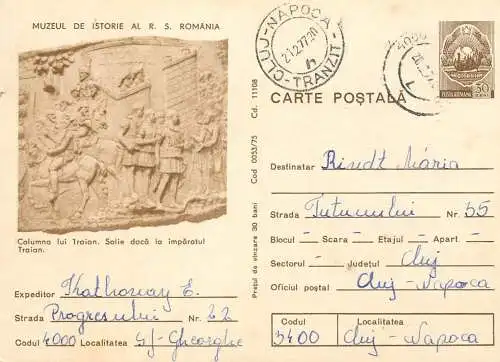 MUZEUL DE ISTORIE AL R. S. ROMÂNIA
Columna lui Traian. Solie dacă la împăratul
Traian.
Expeditor Kathonay E.
Strada Progresului Nr. 22
Codul 4000 Localitatea Sf-Gheorghe
Prețul de vînzare 30 bani Cod 0053/75 Cd. 11108
CLUJ-NAPOCA
TRANZIT
CARTE POȘTALĂ
POSTA ROMANA
30
BANI
Destinatar Rindt Mária
Strada Tutunului Nr. 55
Blocul – Scara – Etajul – Apart –
Sectorul – Județul Cluj
Oficiul poștal Cluj-Napoca
Codul Localitatea
3400 Cluj-Napoca